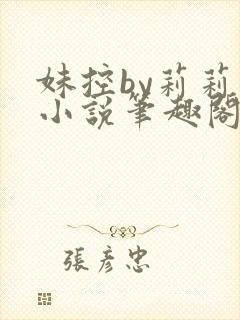 妹控by莉莉
小說筆趣閣
張彥忠